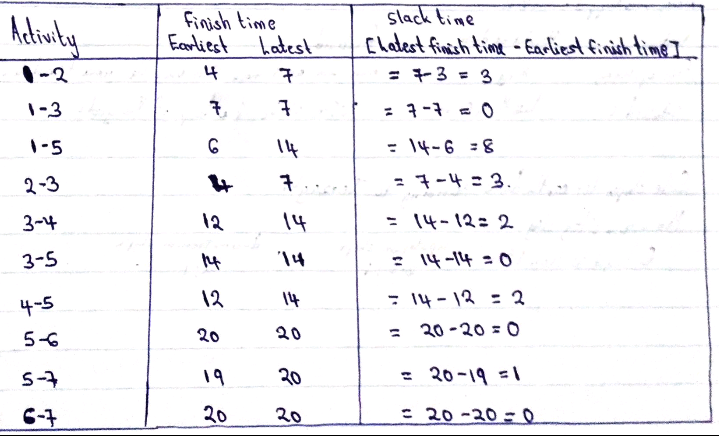 Activity Finish time Slack time
Earliest Latest [Latest finish time - Earliest finish time]
1-2 4 7 = 7-3 = 3
1-3 7 7 = 7-7 = 0
1-5 6 14 = 14-6 = 8
2-3 4 7 = 7-4 = 3.
3-4 12 14 = 14-12 = 2
3-5 14 14 = 14-14 = 0
4-5 12 14 = 14-12 = 2
5-6 20 20 = 20-20 = 0
5-7 19 20 = 20-19 = 1
6-7 20 20 = 20-20 = 0